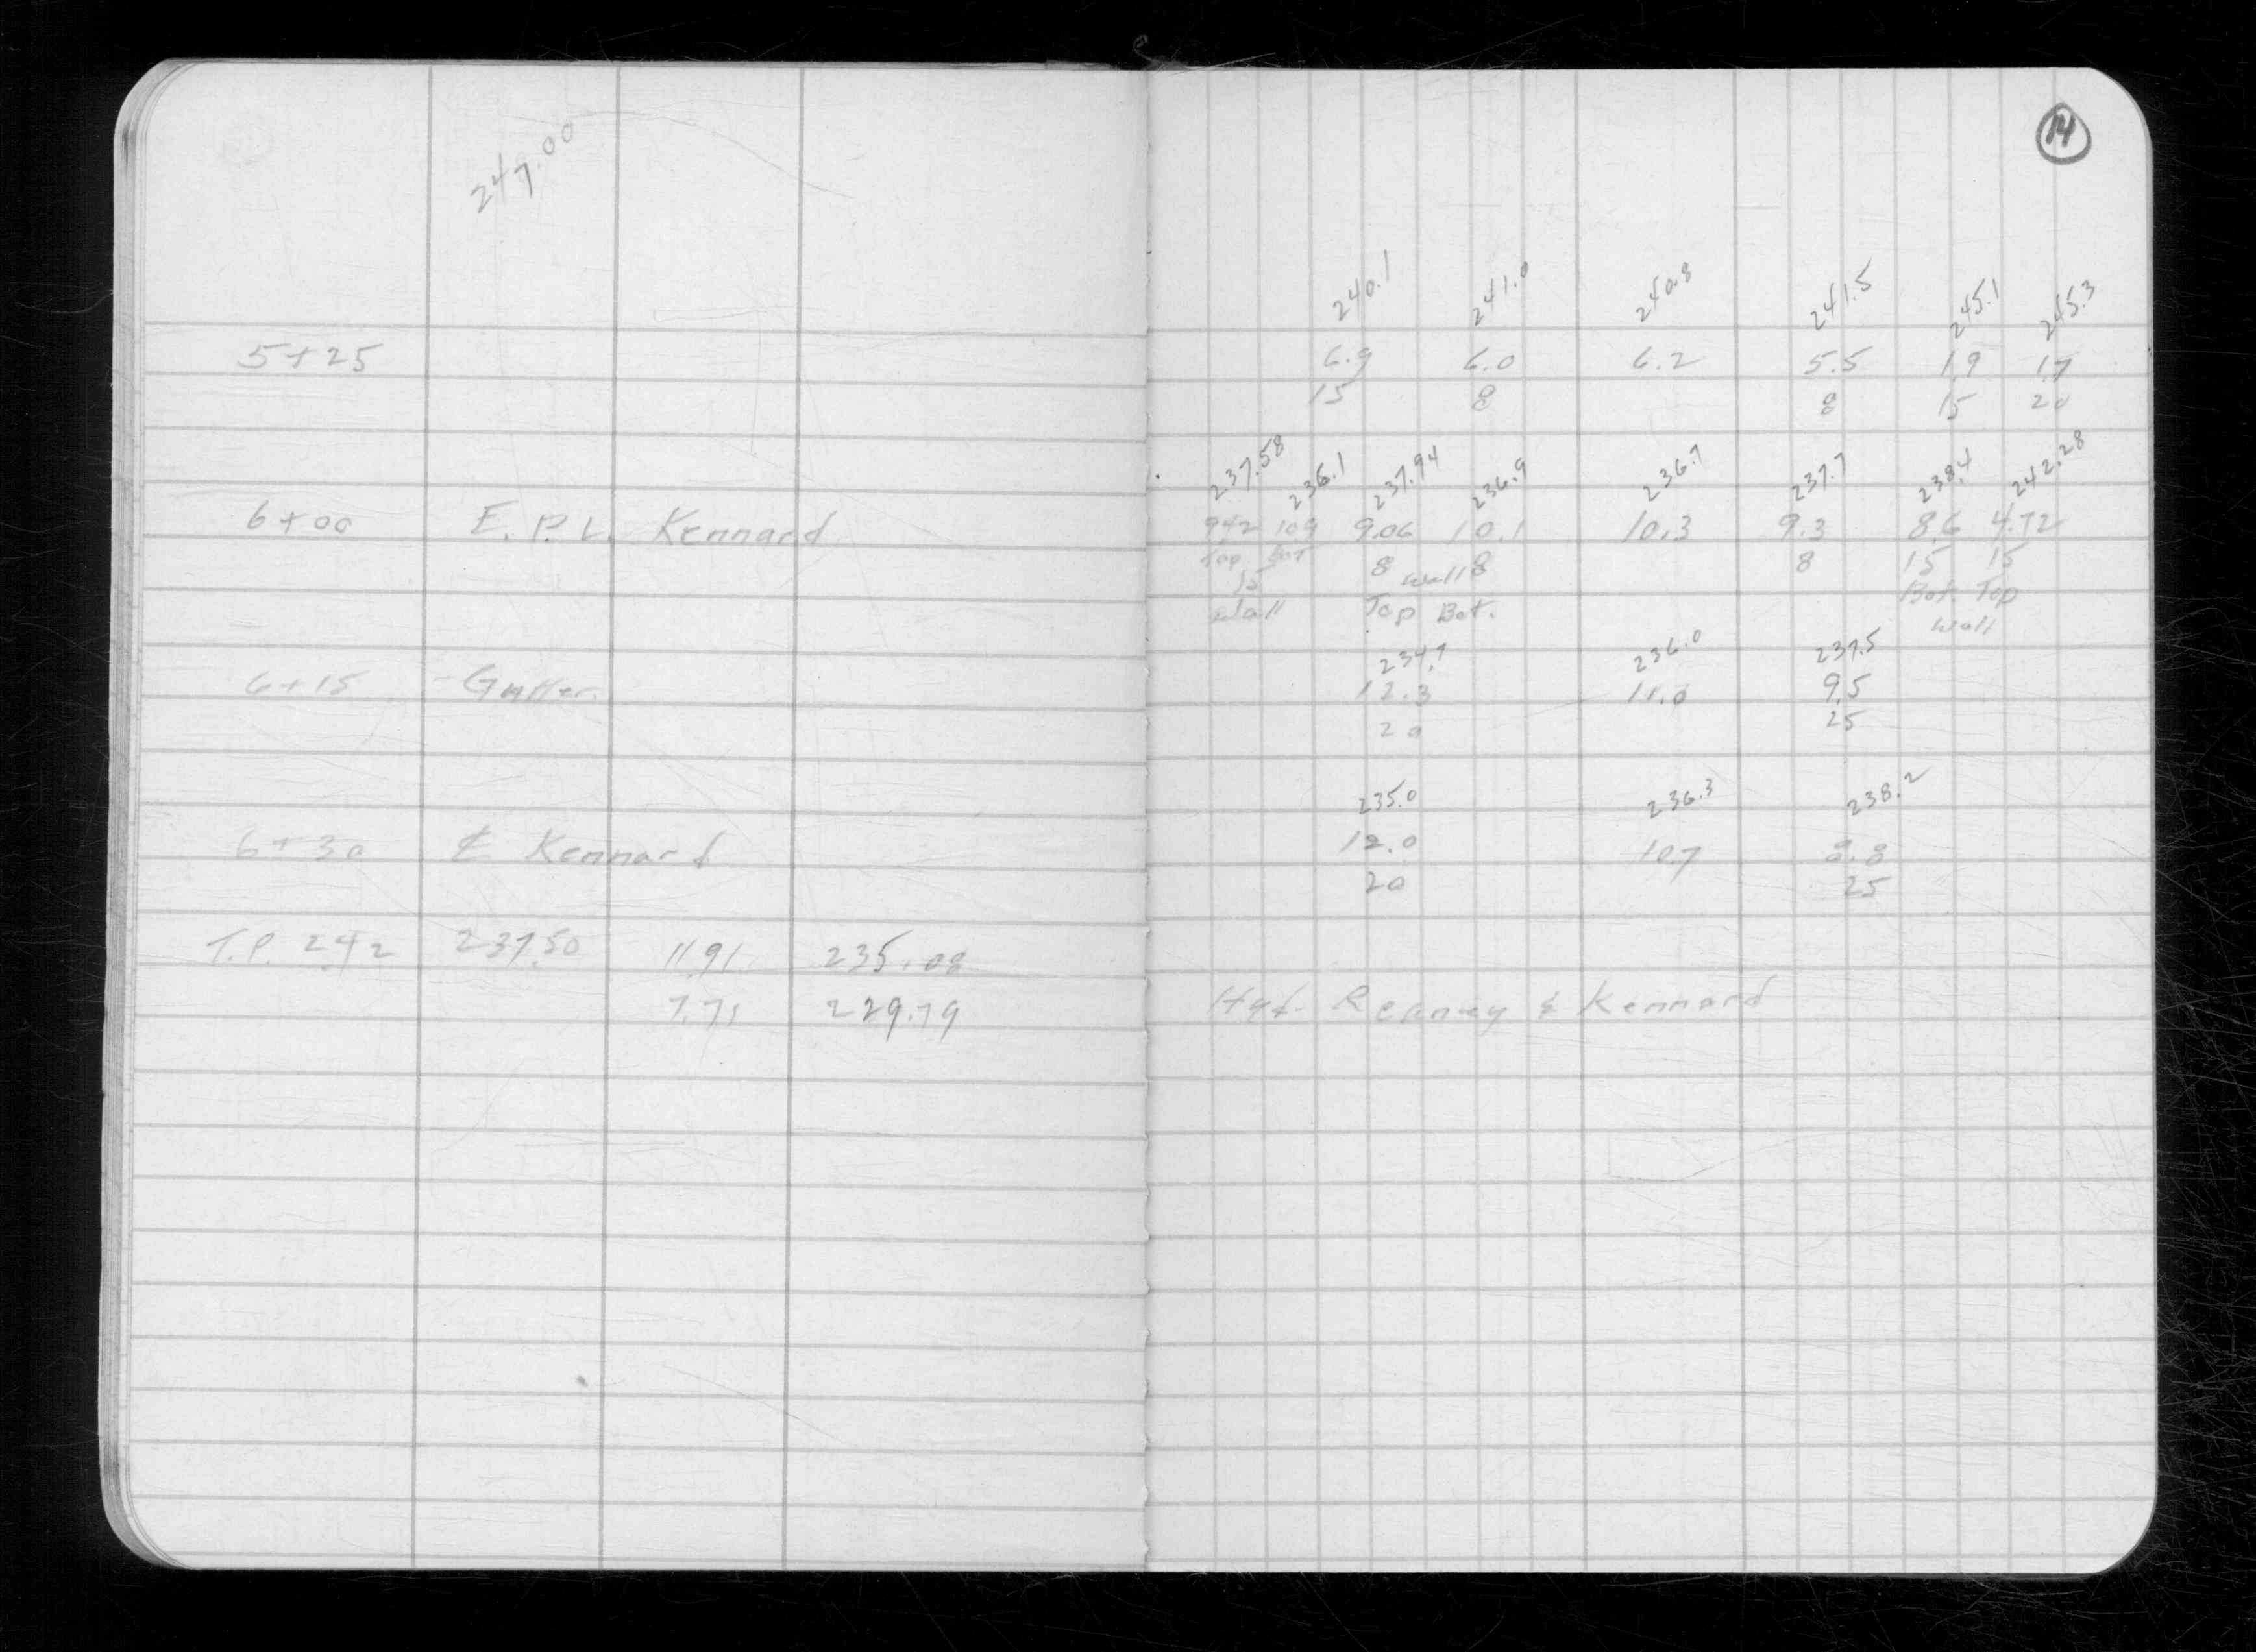 14
247.00
240.1 241.0 240.8 241.5 245.1 245.3
5+25 6.9 6.0 6.2 5.5 1.9 1.7
15 8 8 15 20
237.58 236.1 237.94 236.9 236.7 237.7 238.4 242.28
6+00 E.P.L. Kennard 9.42 10.9 9.06 10.1 10.3 9.3 8.6 4.72
Top Bot 8 Wall 8 8 15 15
15
Wall Top Bot. Bot Top
Wall
234.7 236.0 237.5
6+15 Gutter. 12.3 11.0 9.5
20 25
235.0 236.3 238.2
6+30 ⅊ Kennard 12.0 10.7 8.8
20 25
T.P. 2.42 237.50 11.91 235.08
7.71 229.79 Hyd. Reanney & Kennard